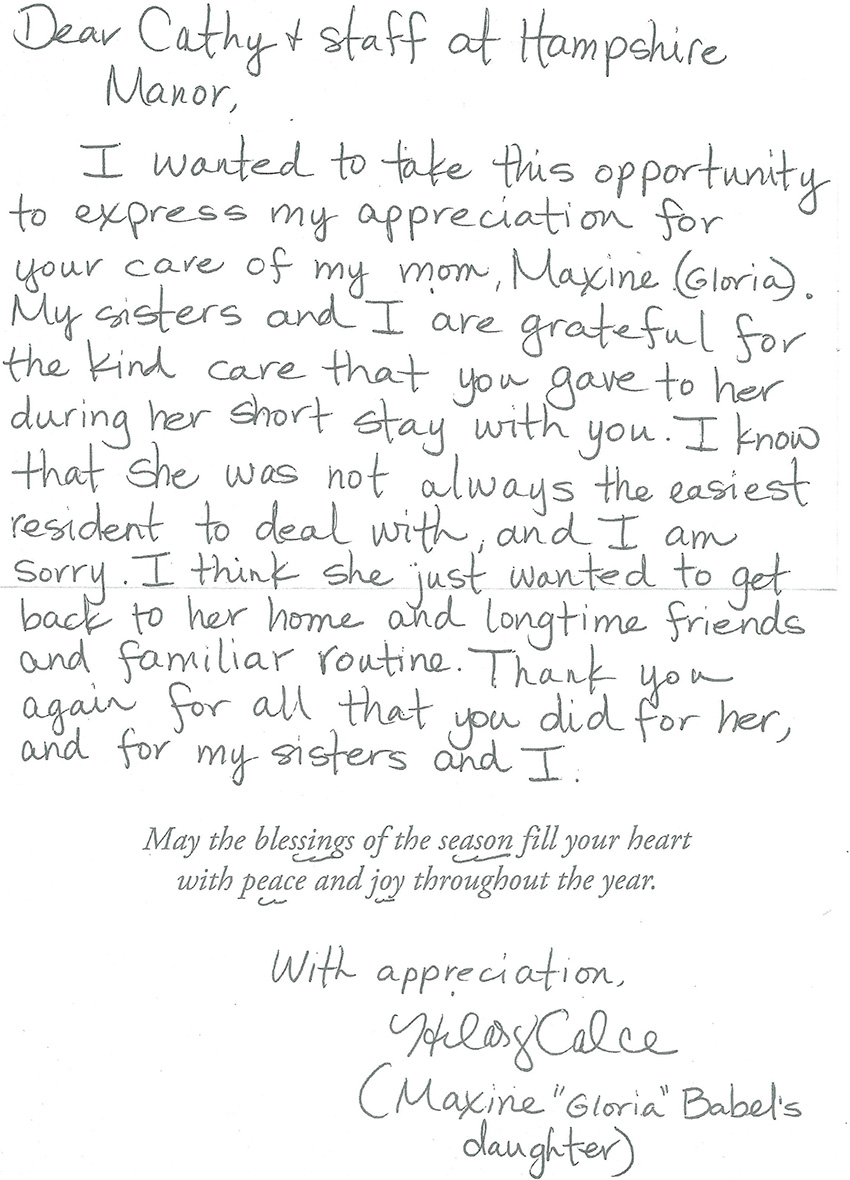 Dear Cathy + staff at Hampshire
Manor,
I wanted to take this opportunity
to express my appreciation for
your care of my mom, Maxine (Gloria).
My sisters and I are grateful for
the kind care that you gave to her
during her short stay with you. I know
that she was not always the easiest
resident to deal with, and I am
sorry. I think she just wanted to get
back to her home and longtime friends
and familiar routine. Thank you
again for all that you did for her,
and for my sisters and I.
May the blessings of the season fill your heart
with peace and joy throughout the year.
With appreciation,
Hilary Calce
(Maxine "Gloria" Babel's
daughter)